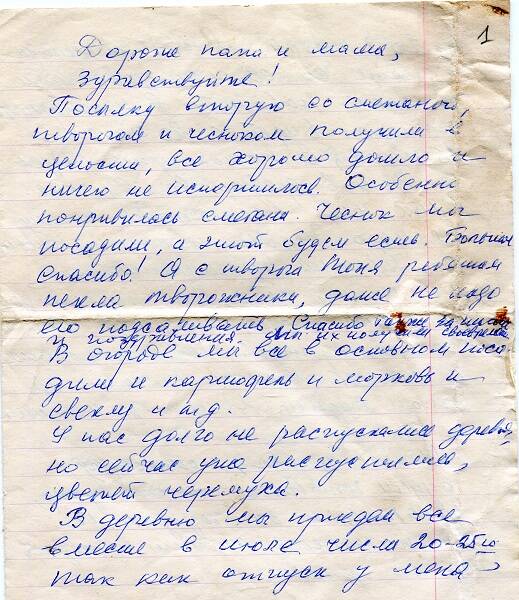 1
Дороже папа и мама,
Здравствуйте!
Посылку вторую со сметаной,
творогом и чесноком получили в
целости, все хорошо дошло и
ничего не испортилось. Особенно
понравилась сметана. Чеснок мы
посадили, а этот будем есть. Большое
спасибо! А с творога Тоня ребятам
пекла творожники, даже не надо
его подсаливать Спасибо также за письма
и поздравления. Мы их получили своевременно
В огороде мы все в основном поса-
дили и картофель и морковь и
свеклу и т.д.
У нас долго не распускались деревья,
но сейчас уже распустились,
цветет черемуха.
В деревню мы приедем все
вместе в июле числа 20-25го
так как отпуск у меня